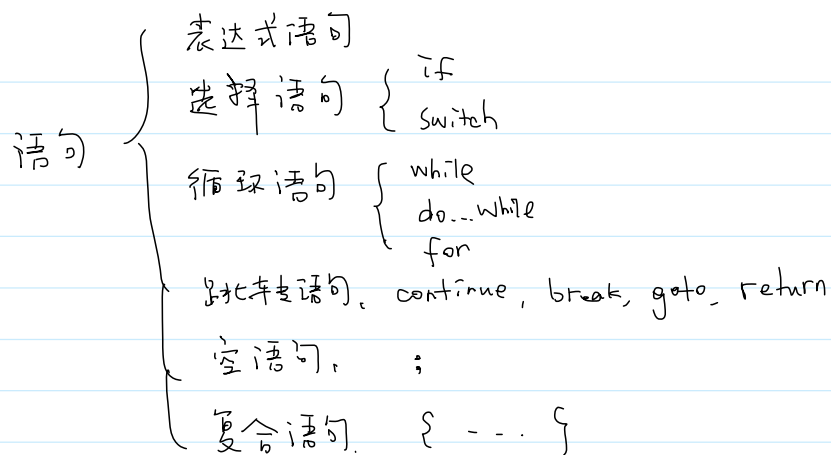 表达式语句
选择语句 { if
switch
语句 {
循环语句 { while
do...while
for
跳转语句. continue, break, goto, return
空语句. ;
复合语句. { - - - . }